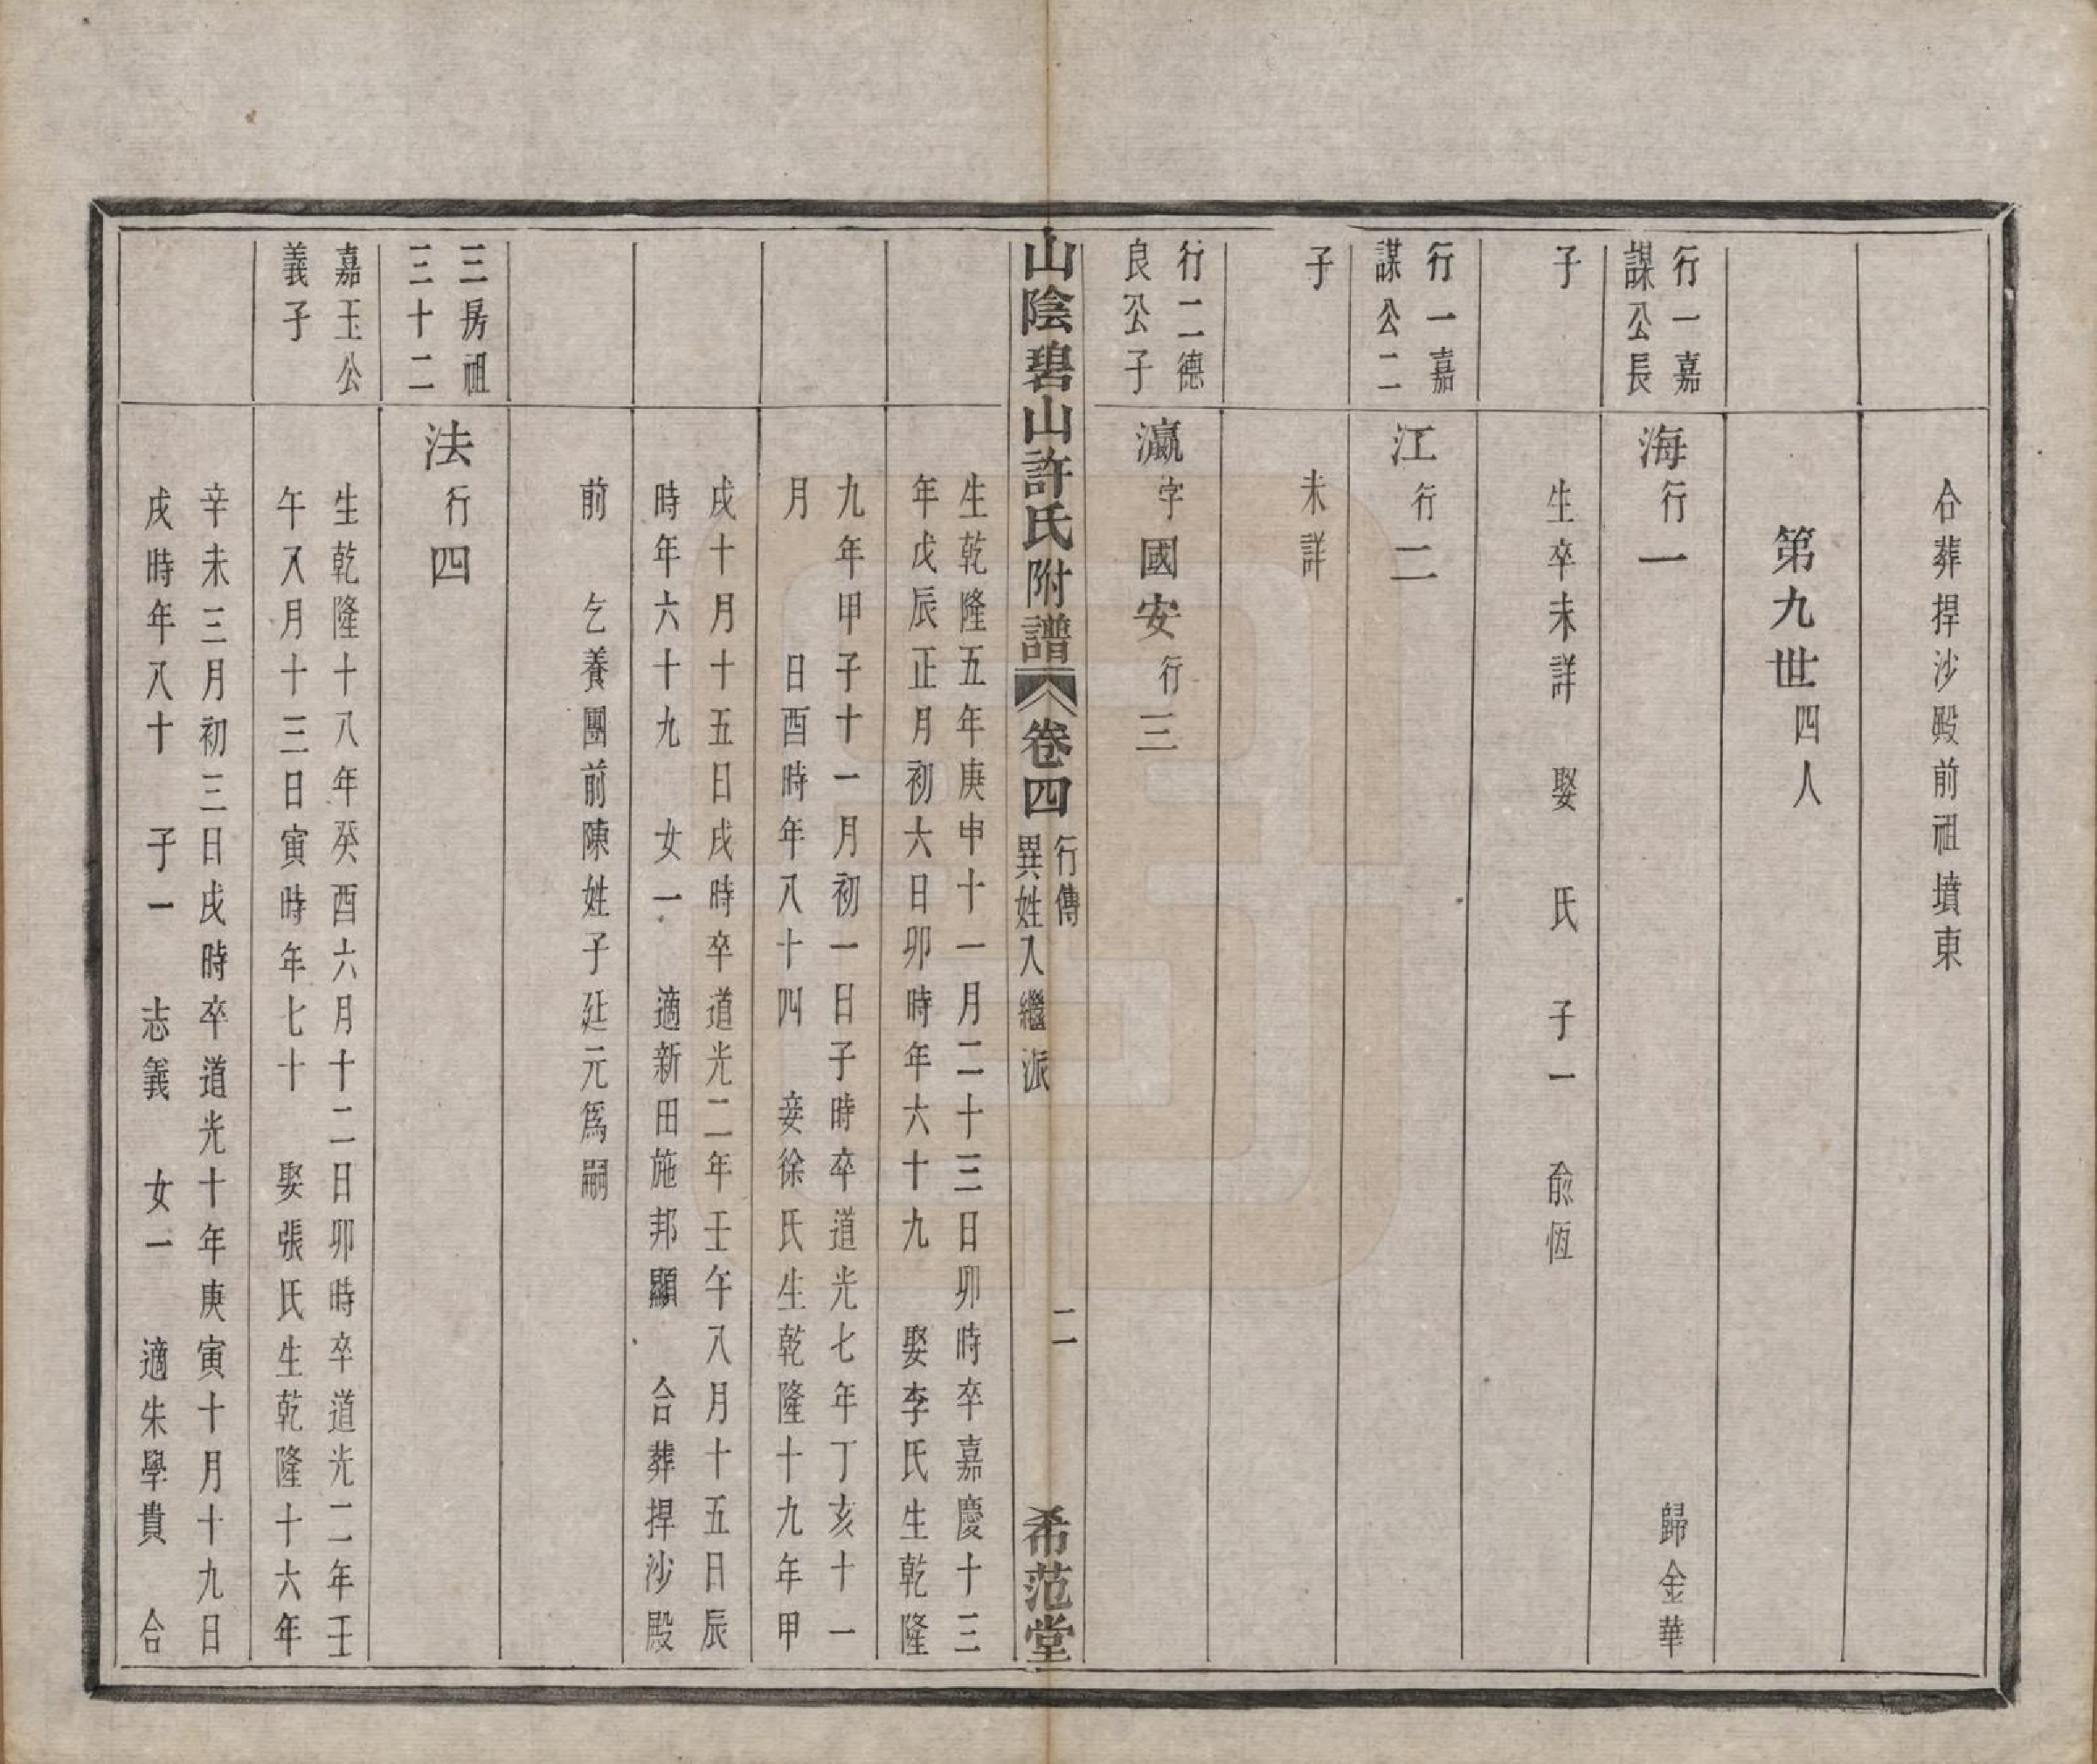 合葬捍沙殿前祖墳東
第九世四人
行一嘉
謀公長
海行一
歸金華
子
生卒未詳 娶 氏 子一 俞恆
行一嘉
謀公二
江行二
子
未詳
行二德
良公子
瀛字國安行三
山陰碧山許氏附譜 卷四 行傳
異姓入繼派
二
希范堂
生乾隆五年庚申十一月二十三日卯時卒嘉慶十三
年戊辰正月初六日卯時年六十九 娶李氏生乾隆
九年甲子十一月初一日子時卒道光七年丁亥十一
月 日酉時年八十四 妾徐氏生乾隆十九年甲
戌十月十五日戌時卒道光二年壬午八月十五日辰
時年六十九 女一 適新田施邦顯 合葬捍沙殿
前 乞養團前陳姓子廷元爲嗣
三房祖
三十二
法行四
嘉玉公
義子
生乾隆十八年癸酉六月十二日卯時卒道光二年壬
午八月十三日寅時年七十 娶張氏生乾隆十六年
辛未三月初三日戌時卒道光十年庚寅十月十九日
戌時年八十 子一 志義 女一 適朱學貴 合